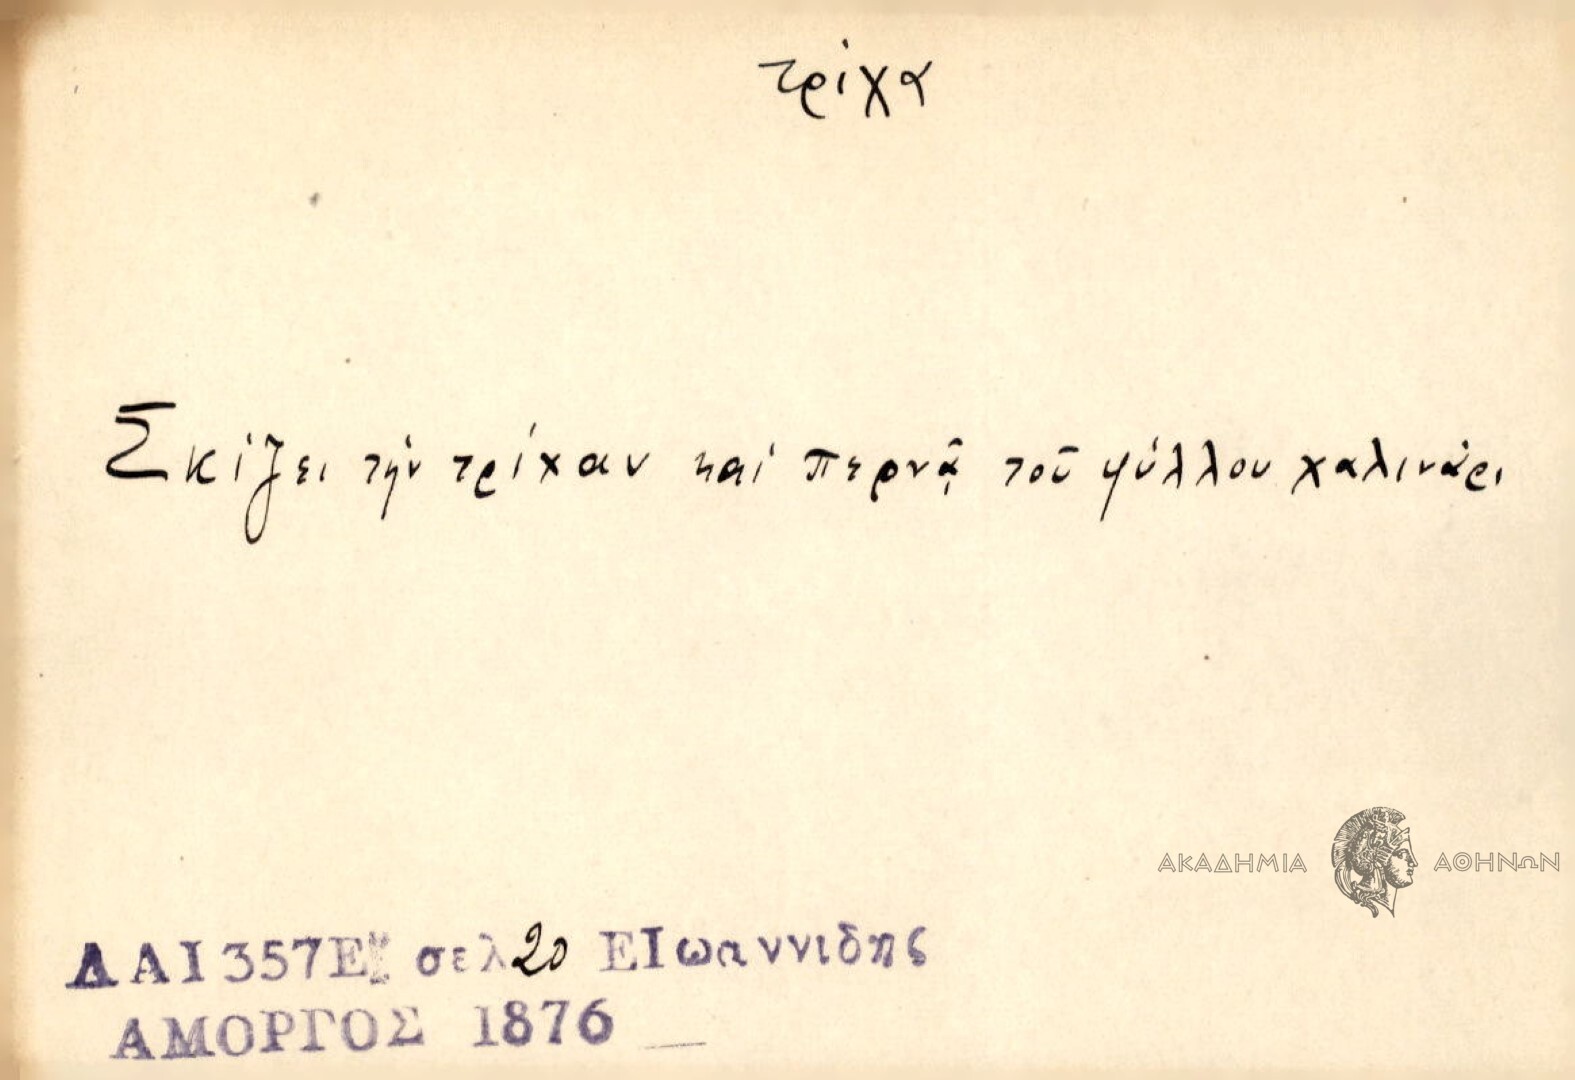 τρίχα
Σκίζει τὴν τρίχαν καὶ περνᾷ τοῦ ψύλλου χαλινάρι
ΑΚΑΔΗΜΙΑ ΑΘΗΝΩΝ
ΔΑΙ 357Ε σελ 20 ΕΙωαννιδης
ΑΜΟΡΓΟΣ 1876